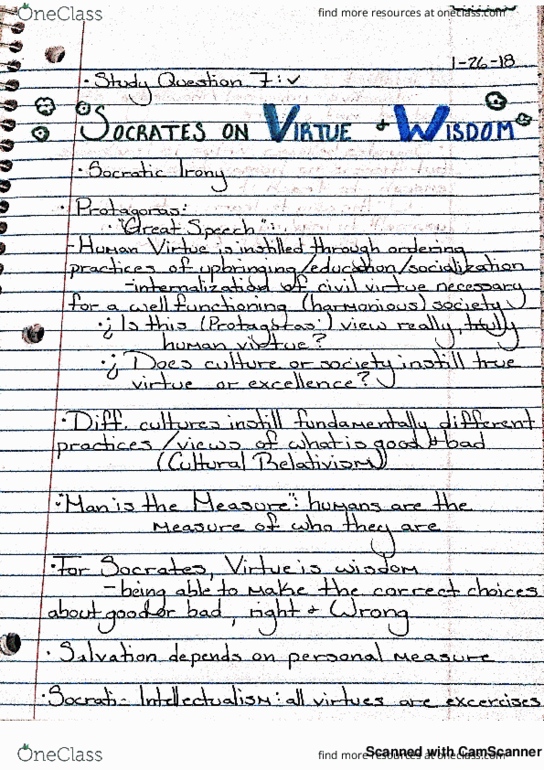 OneClass
find more resources at oneclass.com
1-26-18
· Study Question 7: ✓
SOCRATES ON VIRTUE + WISDOM
· Socratic Irony
· Protagoras:
· "Great Speech":
- Human Virtue is instilled through ordering
practices of upbringing/education/socialization
- internalization of civil virtue necessary
for a well functioning (harmonious) society
· ¿ Is this (Protagoras') view really, truly
human virtue?
· ¿ Does culture or society instill true
virtue or excellence?
· Diff. cultures instill fundamentally different
practices/views of what is good & bad
(Cultural Relativism)
· "Man is the Measure": humans are the
measure of who they are
· For Socrates, Virtue is wisdom
- being able to make the correct choices
about good or bad, right + wrong
· Salvation depends on personal measure
· Socratic Intellectualism: all virtues are excercises
OneClass
find more resources at oneclass.com
Scanned with CamScanner